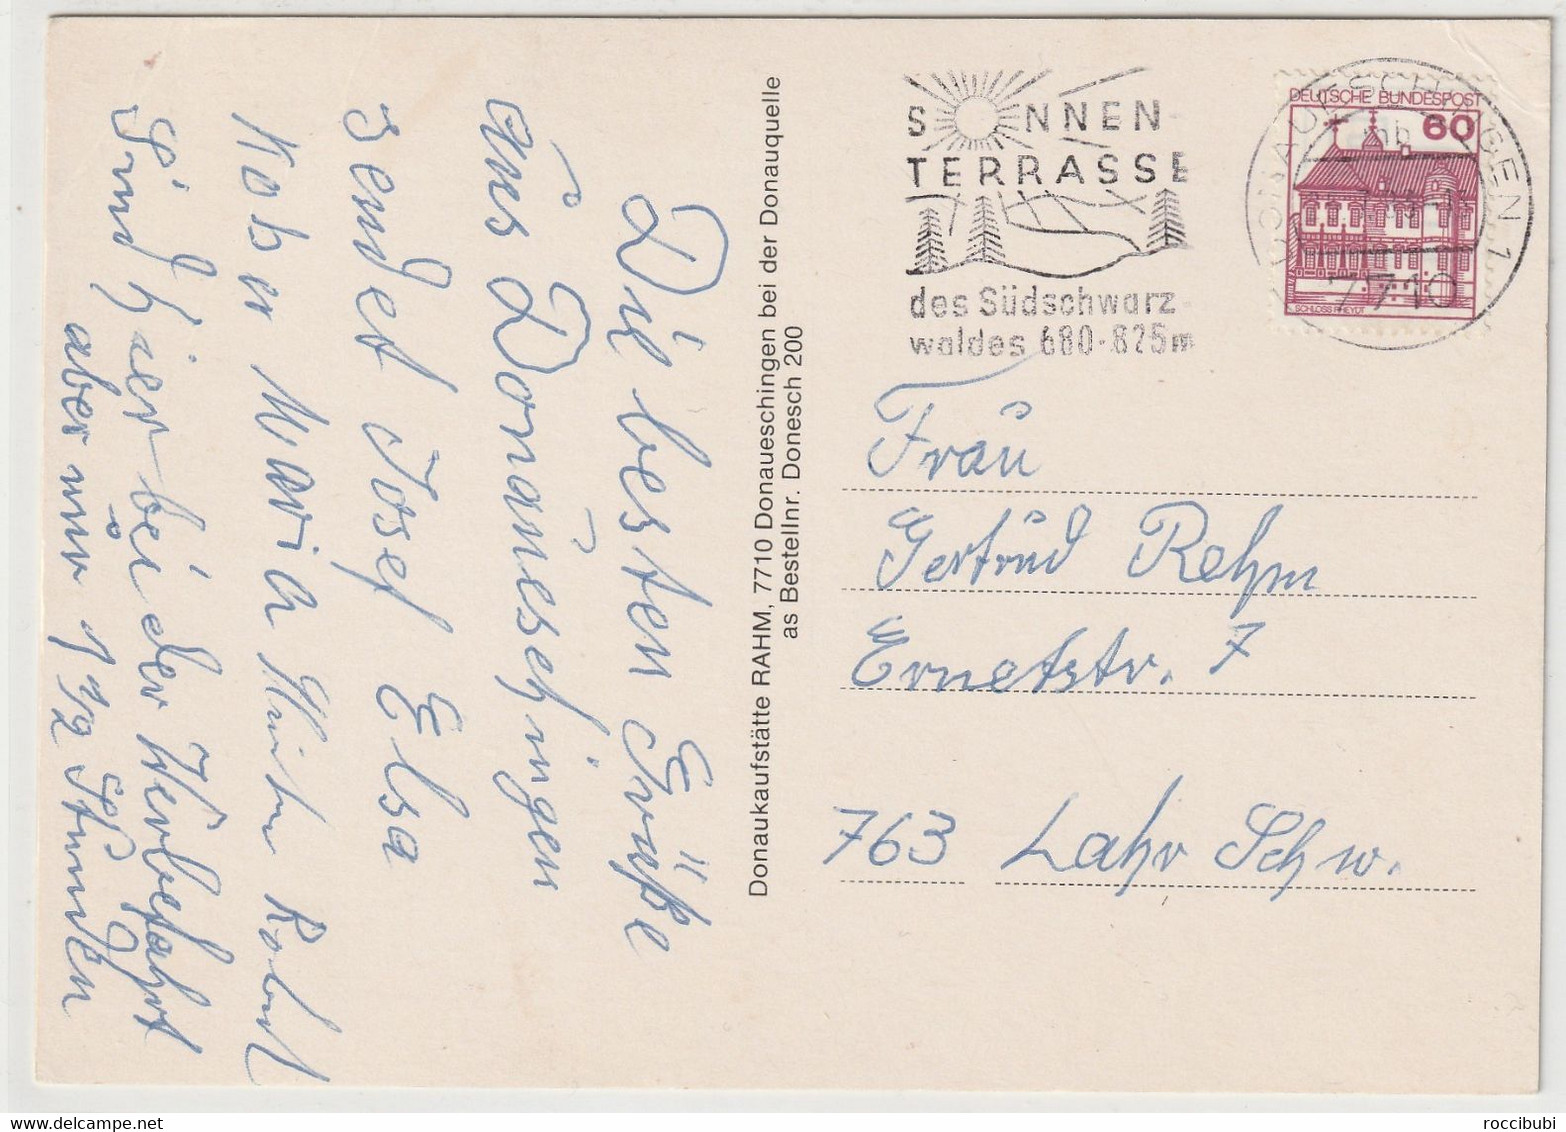 Die besten Grüße
aus Donaueschingen
sendet Josef Elsa
Sind hier bei der Werbefahrt
aber nur 1 1/2 Stunden
Donaukaufstätte RAHM, 7710 Donaueschingen bei der Donauquelle
as Bestellnr. Donesch 200
SONNEN-
TERRASSE
des Südschwarz-
waldes 680-825m
DONAUESCHINGEN 1
mb
7710
DEUTSCHE BUNDESPOST
60
SCHLOSS RHEYDT
Frau
Gertrud Rehm
Ernetstr. 7
763 Lahr Schw.
roccibubi